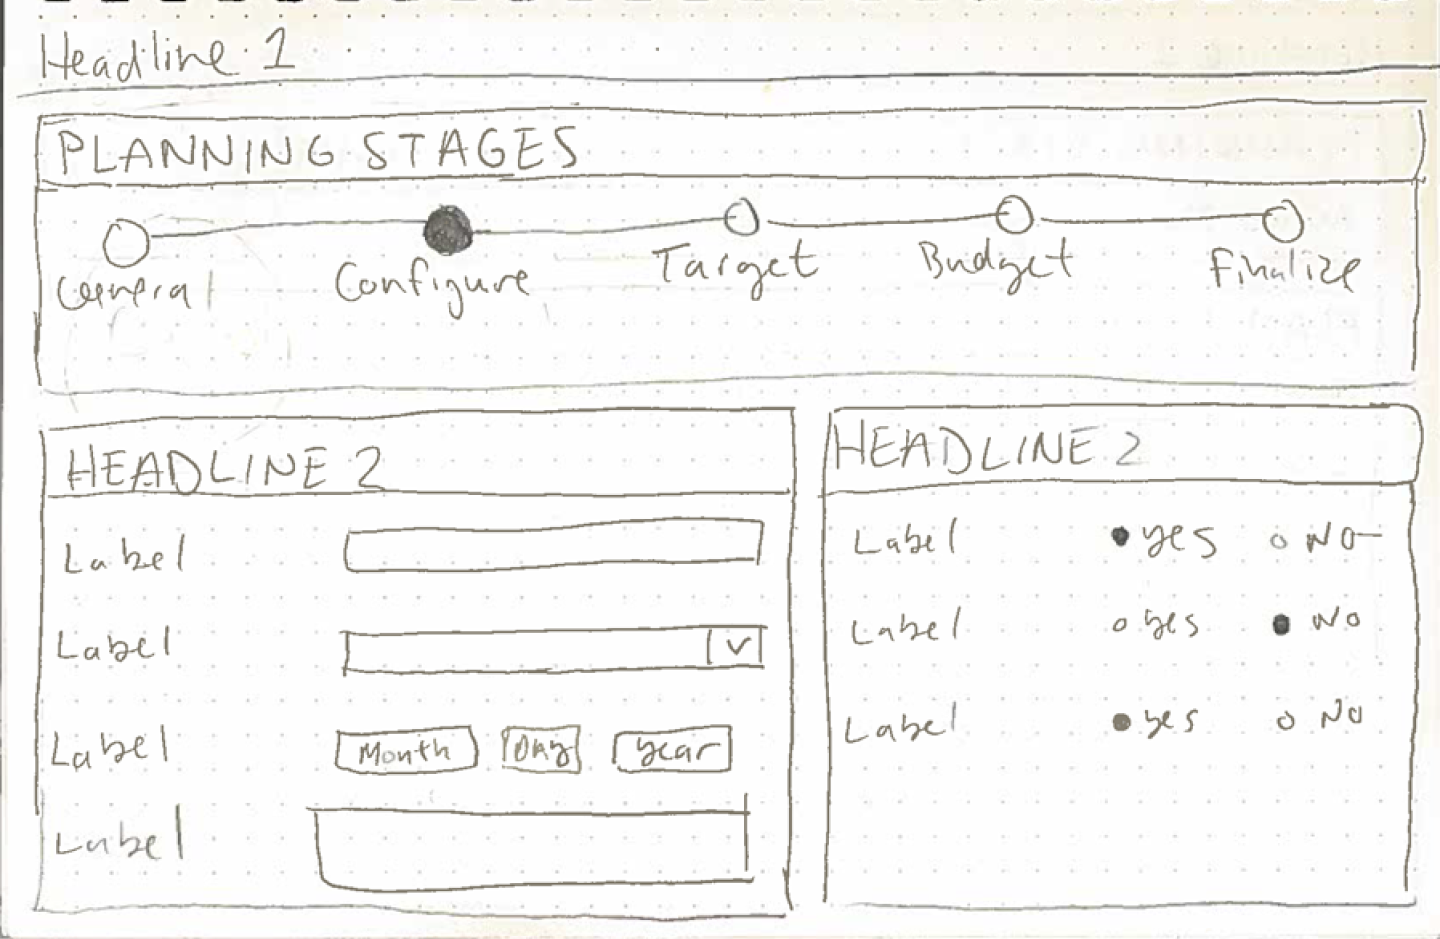 Headline 1
PLANNING STAGES
General Configure Target Budget Finalize
HEADLINE 2
Label
Label
Label Month Day Year
Label
HEADLINE 2
Label yes No
Label yes No
Label yes No